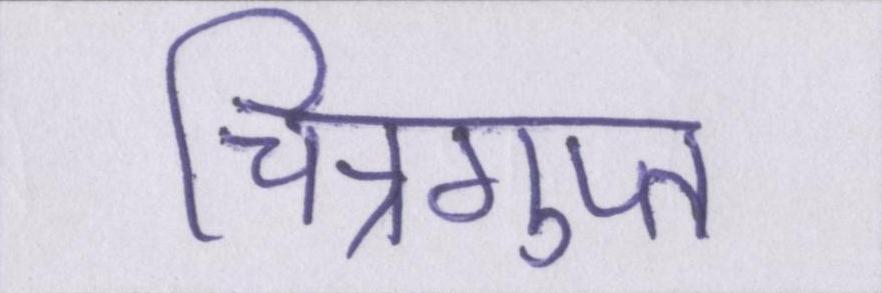 चित्रगुप्त